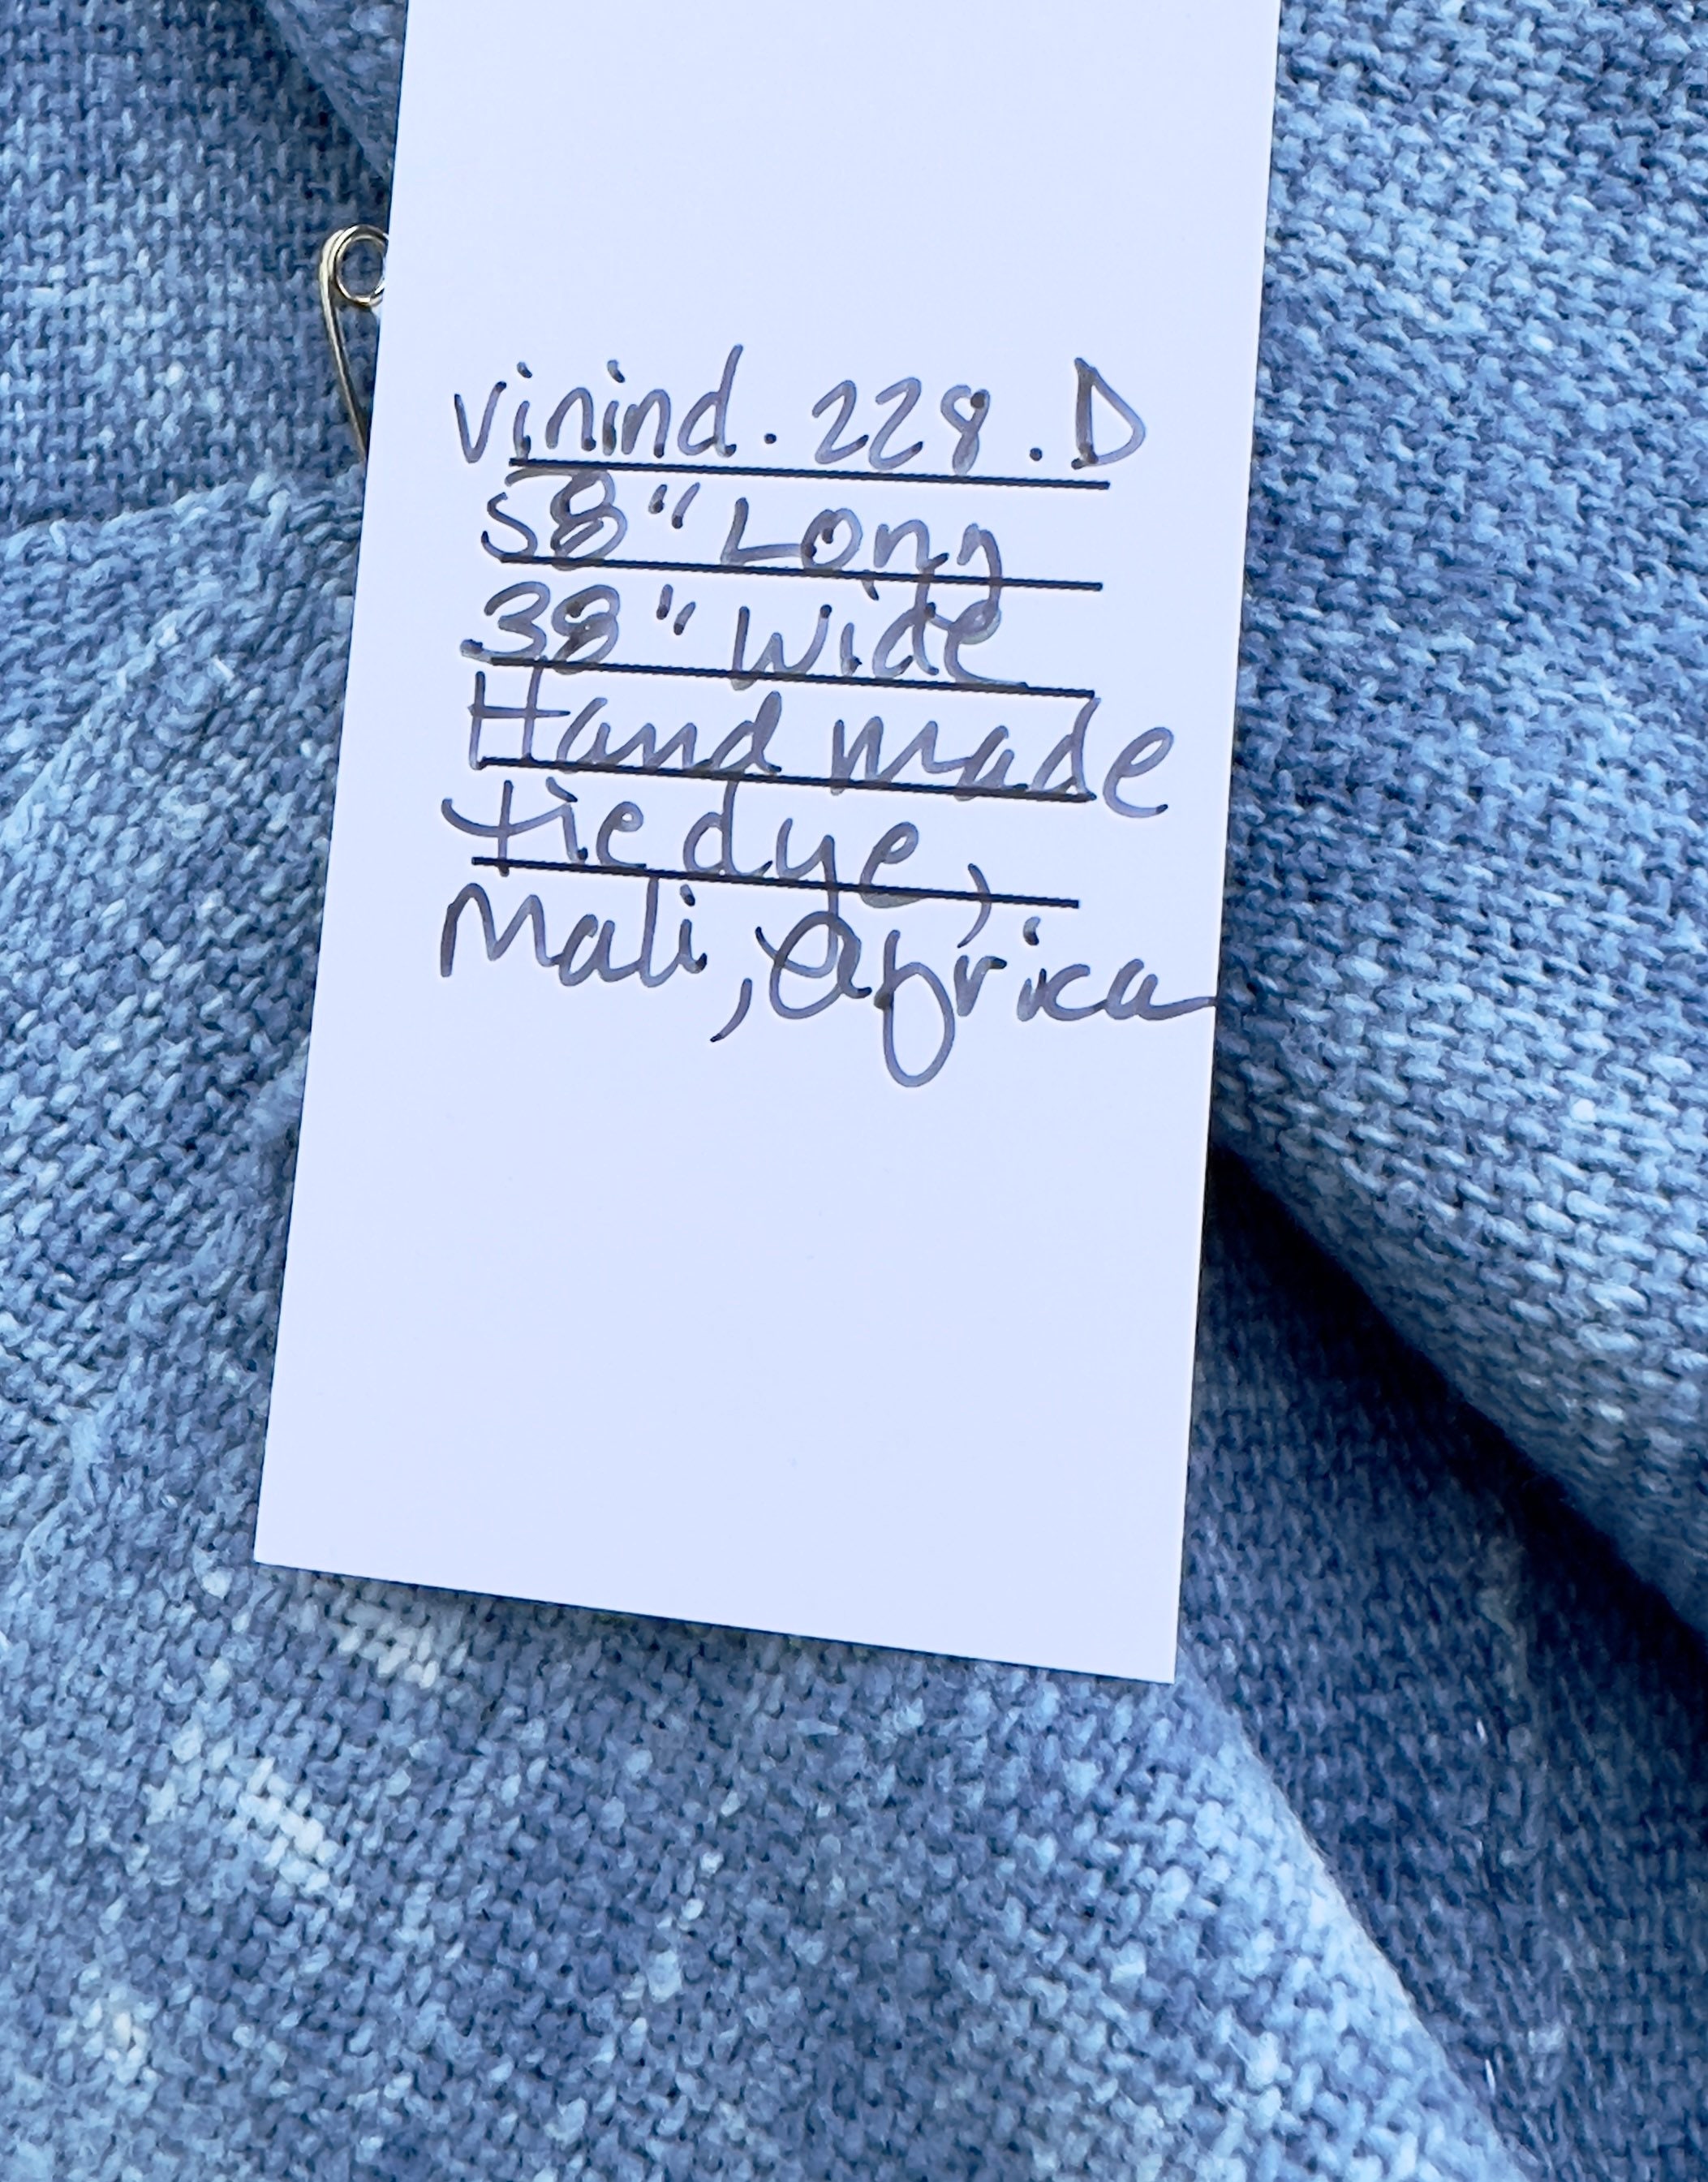 vinind. 228. D
58" Long
38" Wide
Hand made
tie dye,
Mali, Africa